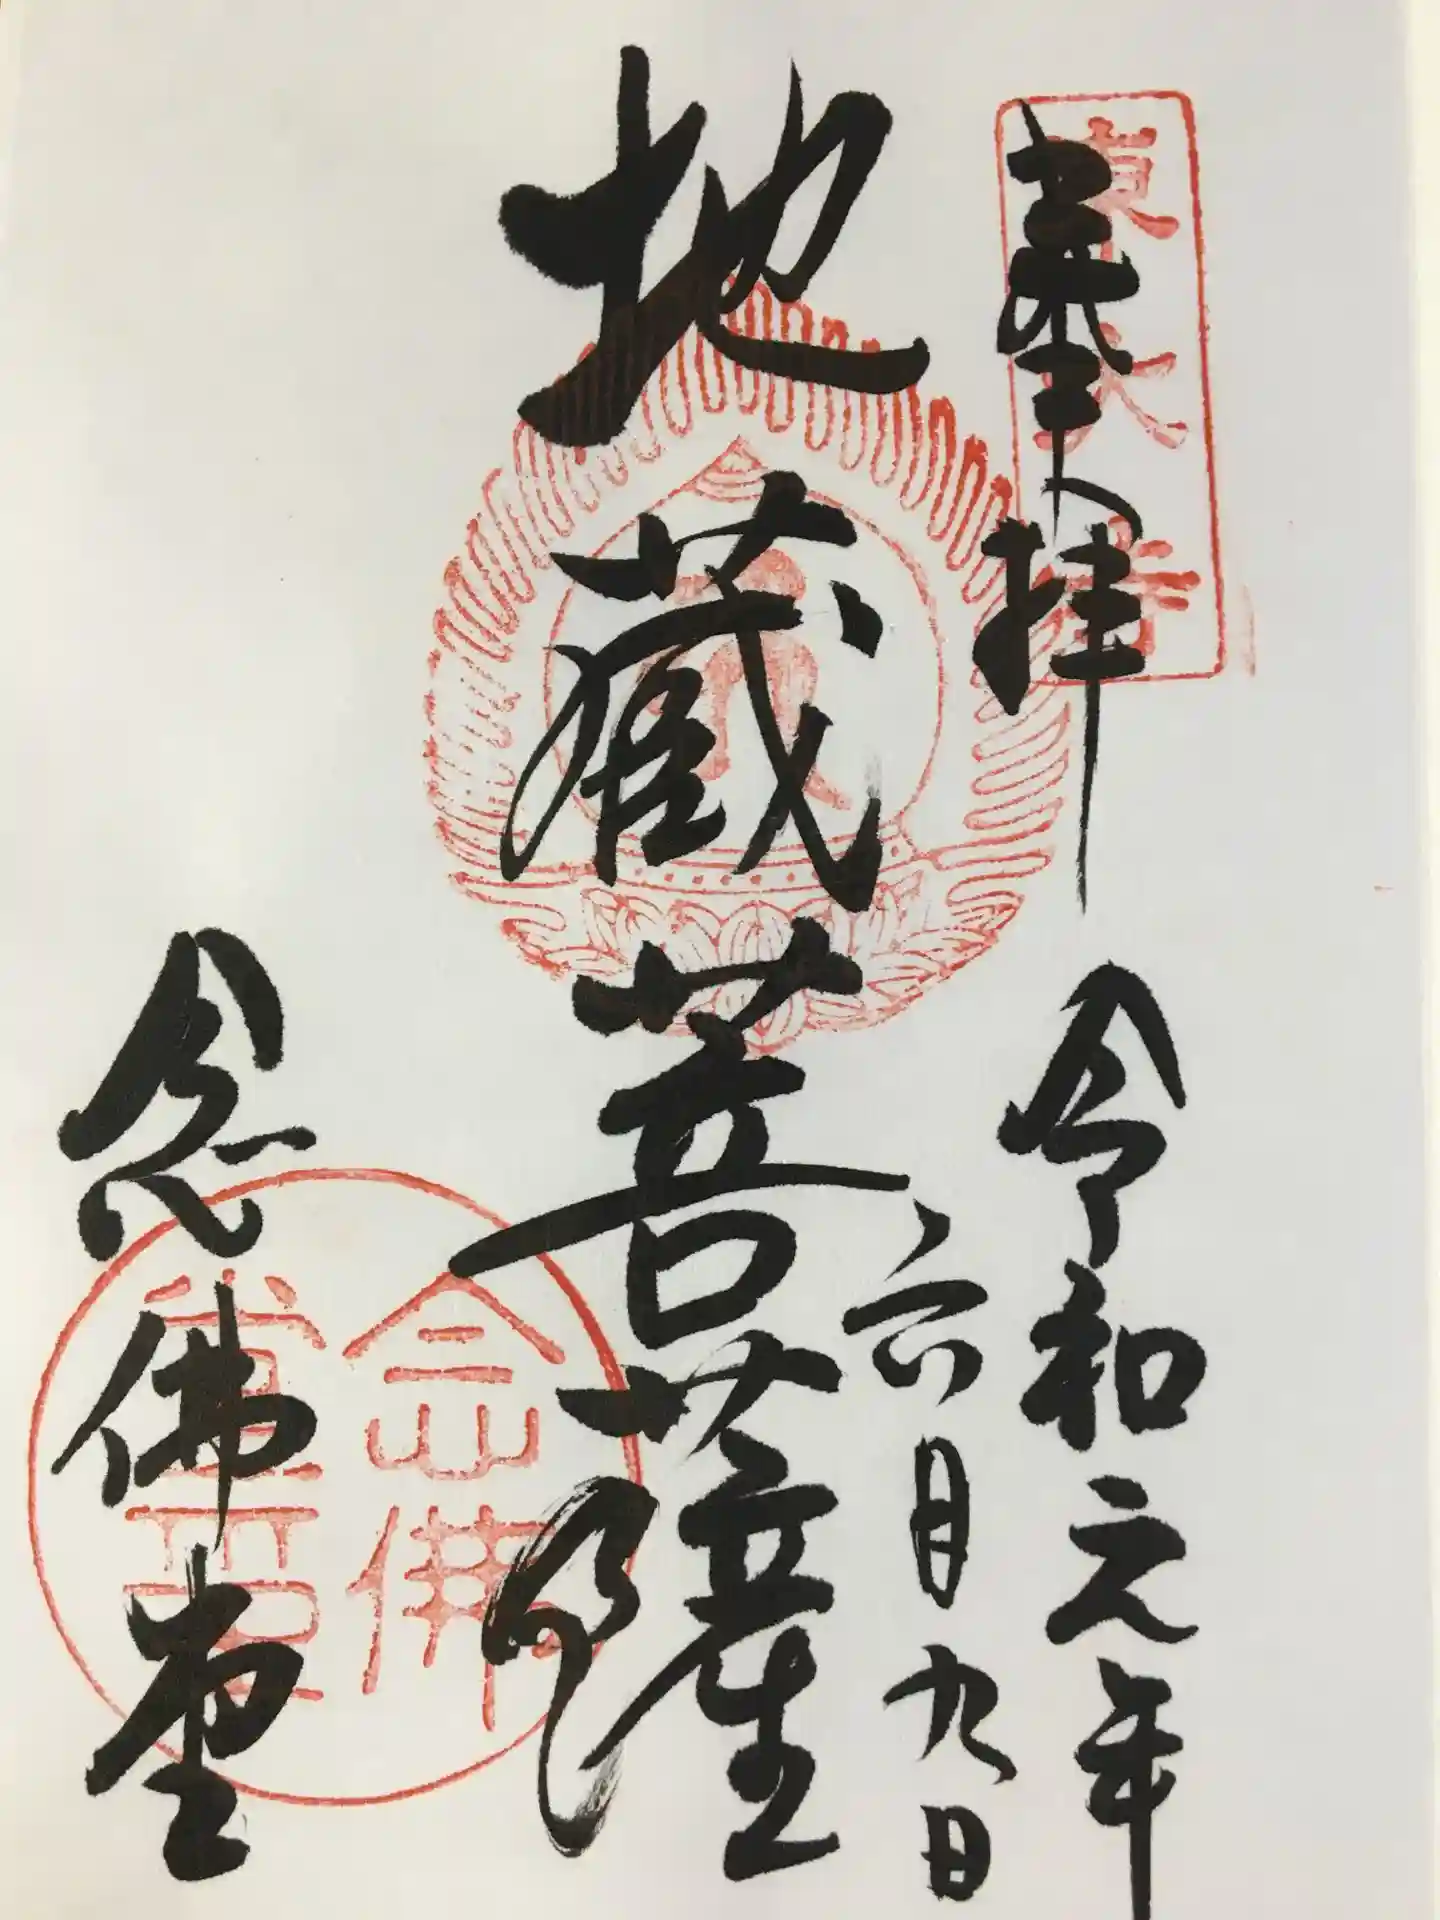 奉拝
東大寺
令和元年
六月九日
地蔵菩薩
念佛堂
念佛堂印